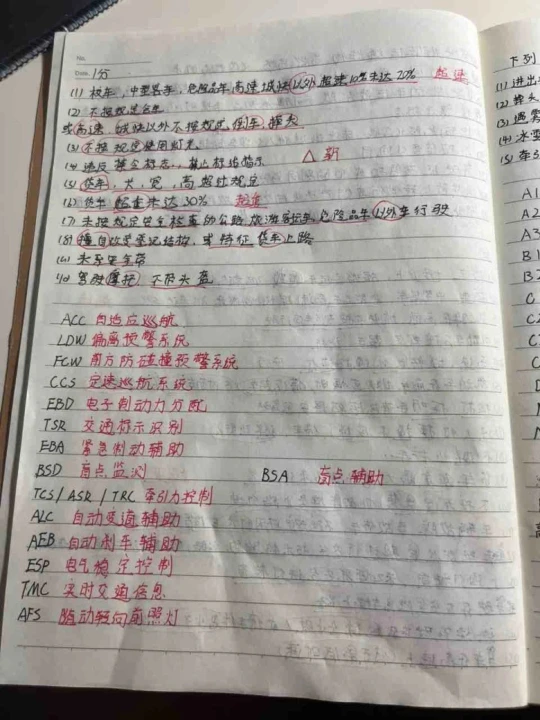 No.
Date. 1分
(1) 校车、中型客车、危险品车 高速城快以外 超速10%未达20% 超速
(2) 不按规定会车
或高速、城快以外不按规定倒车、掉头
(3) 不按规定使用灯光
(4) 违反禁令标志、禁止标线指示 △新
(5) 货车，长，宽，高超过规定
(6) 货车 超重未达30% 超重
(7) 未按规定安全检查的公路旅游客运、危险品车以外车行驶
(8) 擅自改变登记结构、或特征 货车上路
(9) 未系安全带
(10) 驾驶摩托 不带头盔
ACC 自适应巡航
LDW 偏离预警系统
FCW 前方防碰撞预警系统
CCS 定速巡航系统
EBD 电子制动力分配
TSR 交通标示识别
EBA 紧急制动辅助
BSD 盲点监测 BSA 盲点辅助
TCS / ASR / TRC 牵引力控制
ALC 自动变道辅助
AEB 自动刹车辅助
ESP 电气稳定控制
TMC 实时交通信息
AFS 随动转向前照灯
下列
(1) 进出
(2) 掉头
(3) 遇雾
(4) 冰
(5) 牵
A1
A2
A3
B1
B2
C
C
C